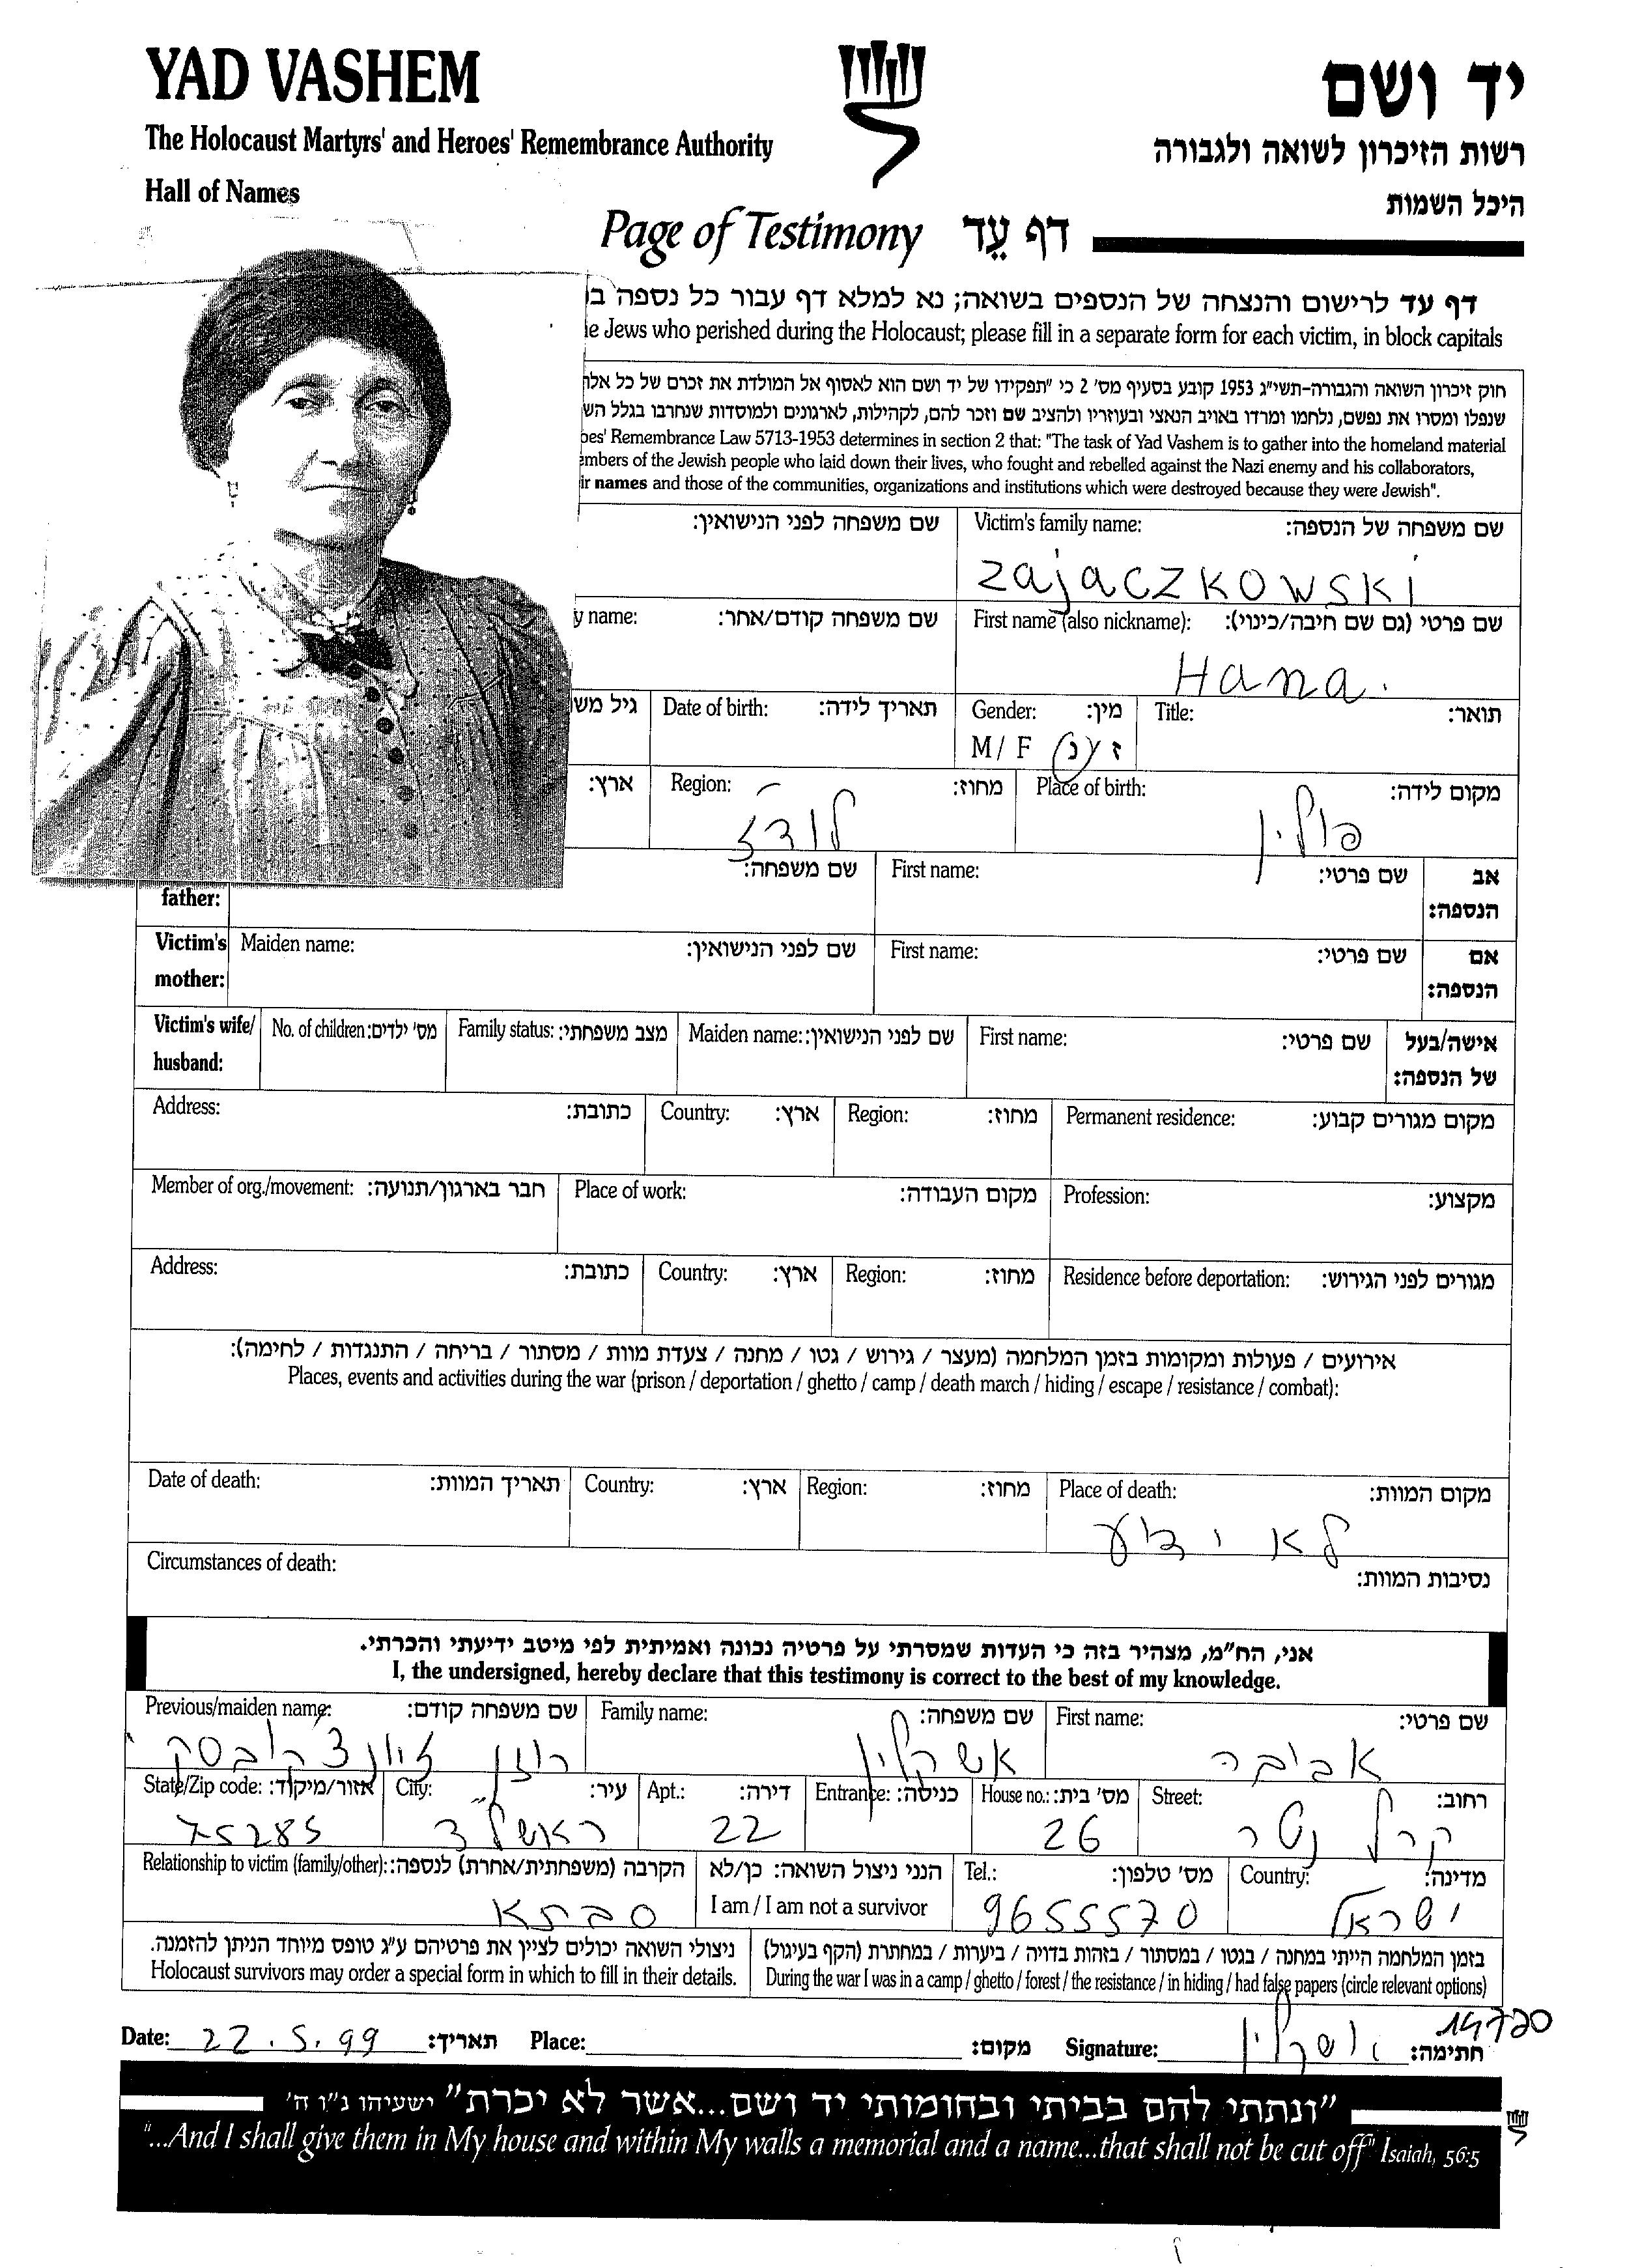 YAD VASHEM
יד ושם
The Holocaust Martyrs' and Heroes' Remembrance Authority
רשות הזיכרון לשואה ולגבורה
Hall of Names
היכל השמות
Page of Testimony דף עֵד
דף עד לרישום והנצחה של הנספים בשואה; נא למלא דף עבור כל נספה
Jews who perished during the Holocaust; please fill in a separate form for each victim, in block capitals
חוק זיכרון השואה והגבורה-תשי"ג 1953 קובע בסעיף מס' 2 כי "תפקידו של יד ושם הוא לאסוף אל המולדת את זכרם של כל
שנפלו ומסרו את נפשם, נלחמו ומרדו באויב הנאצי ובעוזריו ולהציב שם וזכר להם, לקהילות, לארגונים ולמוסדות שנחרבו בגלל
Remembrance Law 5713-1953 determines in section 2 that: "The task of Yad Vashem is to gather into the homeland material
of the Jewish people who laid down their lives, who fought and rebelled against the Nazi enemy and his collaborators,
names and those of the communities, organizations and institutions which were destroyed because they were Jewish".
שם משפחה של הנספה: Victim's family name: שם משפחה לפני הנישואין:
Zajaczkowski
שם פרטי (גם שם חיבה/כינוי): First name (also nickname): שם משפחה קודם/אחר: name:
Hana.
תואר: Title: מין: Gender: תאריך לידה: Date of birth: גיל
M / F ז/נ
מקום לידה: Place of birth: מחוז: Region: ארץ:
פולין לודז
אב הנספה: שם פרטי: First name: שם משפחה: father:
אם הנספה: שם פרטי: First name: שם לפני הנישואין: Maiden name: Victim's mother:
אישה/בעל של הנספה: שם פרטי: First name: שם לפני הנישואין: Maiden name: מצב משפחתי: Family status: מס' ילדים: No. of children: Victim's wife/ husband:
מקום מגורים קבוע: Permanent residence: מחוז: Region: ארץ: Country: כתובת: Address:
מקצוע: Profession: מקום העבודה: Place of work: חבר בארגון/תנועה: Member of org./movement:
מגורים לפני הגירוש: Residence before deportation: מחוז: Region: ארץ: Country: כתובת: Address:
אירועים / פעולות ומקומות בזמן המלחמה (מעצר / גירוש / גטו / מחנה / צעדת מוות / מסתור / בריחה / התנגדות / לחימה):
Places, events and activities during the war (prison / deportation / ghetto / camp / death march / hiding / escape / resistance / combat):
מקום המוות: Place of death: מחוז: Region: ארץ: Country: תאריך המוות: Date of death:
לא ידוע
נסיבות המוות: Circumstances of death:
אני, הח"מ, מצהיר בזה כי העדות שמסרתי על פרטיה נכונה ואמיתית לפי מיטב ידיעתי והכרתי.
I, the undersigned, hereby declare that this testimony is correct to the best of my knowledge.
שם פרטי: First name: שם משפחה: Family name: שם משפחה קודם: Previous/maiden name:
אביבה אשקלין רוזן
רחוב: Street: מס' בית: House no.: כניסה: Entrance: דירה: Apt.: עיר: City: אזור/מיקוד: State/Zip code:
קרל נטר 26 22 ראשל"צ 75285
מדינה: Country: מס' טלפון: Tel.: הנני ניצול השואה: כן/לא הקרבה (משפחתית/אחרת) לנספה: Relationship to victim (family/other):
ישראל 9655570 I am / I am not a survivor סבתא
בזמן המלחמה הייתי במחנה / בגטו / במסתור / בזהות בדויה / ביערות / במחתרת (הקף בעיגול) ניצולי השואה יכולים לציין את פרטיהם ע"ג טופס מיוחד הניתן להזמנה.
During the war I was in a camp / ghetto / forest / the resistance / in hiding / had false papers (circle relevant options) Holocaust survivors may order a special form in which to fill in their details.
Date: 22.5.99 תאריך: Place: מקום: Signature: חתימה:
"ונתתי להם בביתי ובחומותי יד ושם...אשר לא יכרת" ישעיהו נ"ו ה'
"...And I shall give them in My house and within My walls a memorial and a name...that shall not be cut off" Isaiah, 56:5